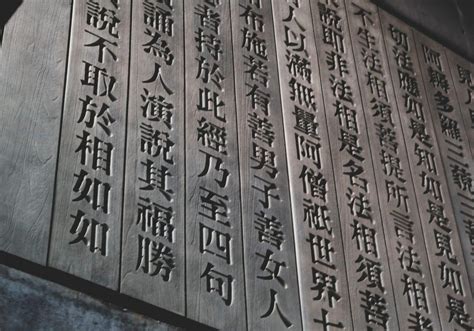 阿耨多羅三藐
切法應如是知如是見如
不生法相須菩提所言法相
說即非法相是名法相須菩
人以滿無量阿僧祇世界
布施若有善男子善女人
者持於此經乃至四句
誦為人演說其福勝
說不取於相如如